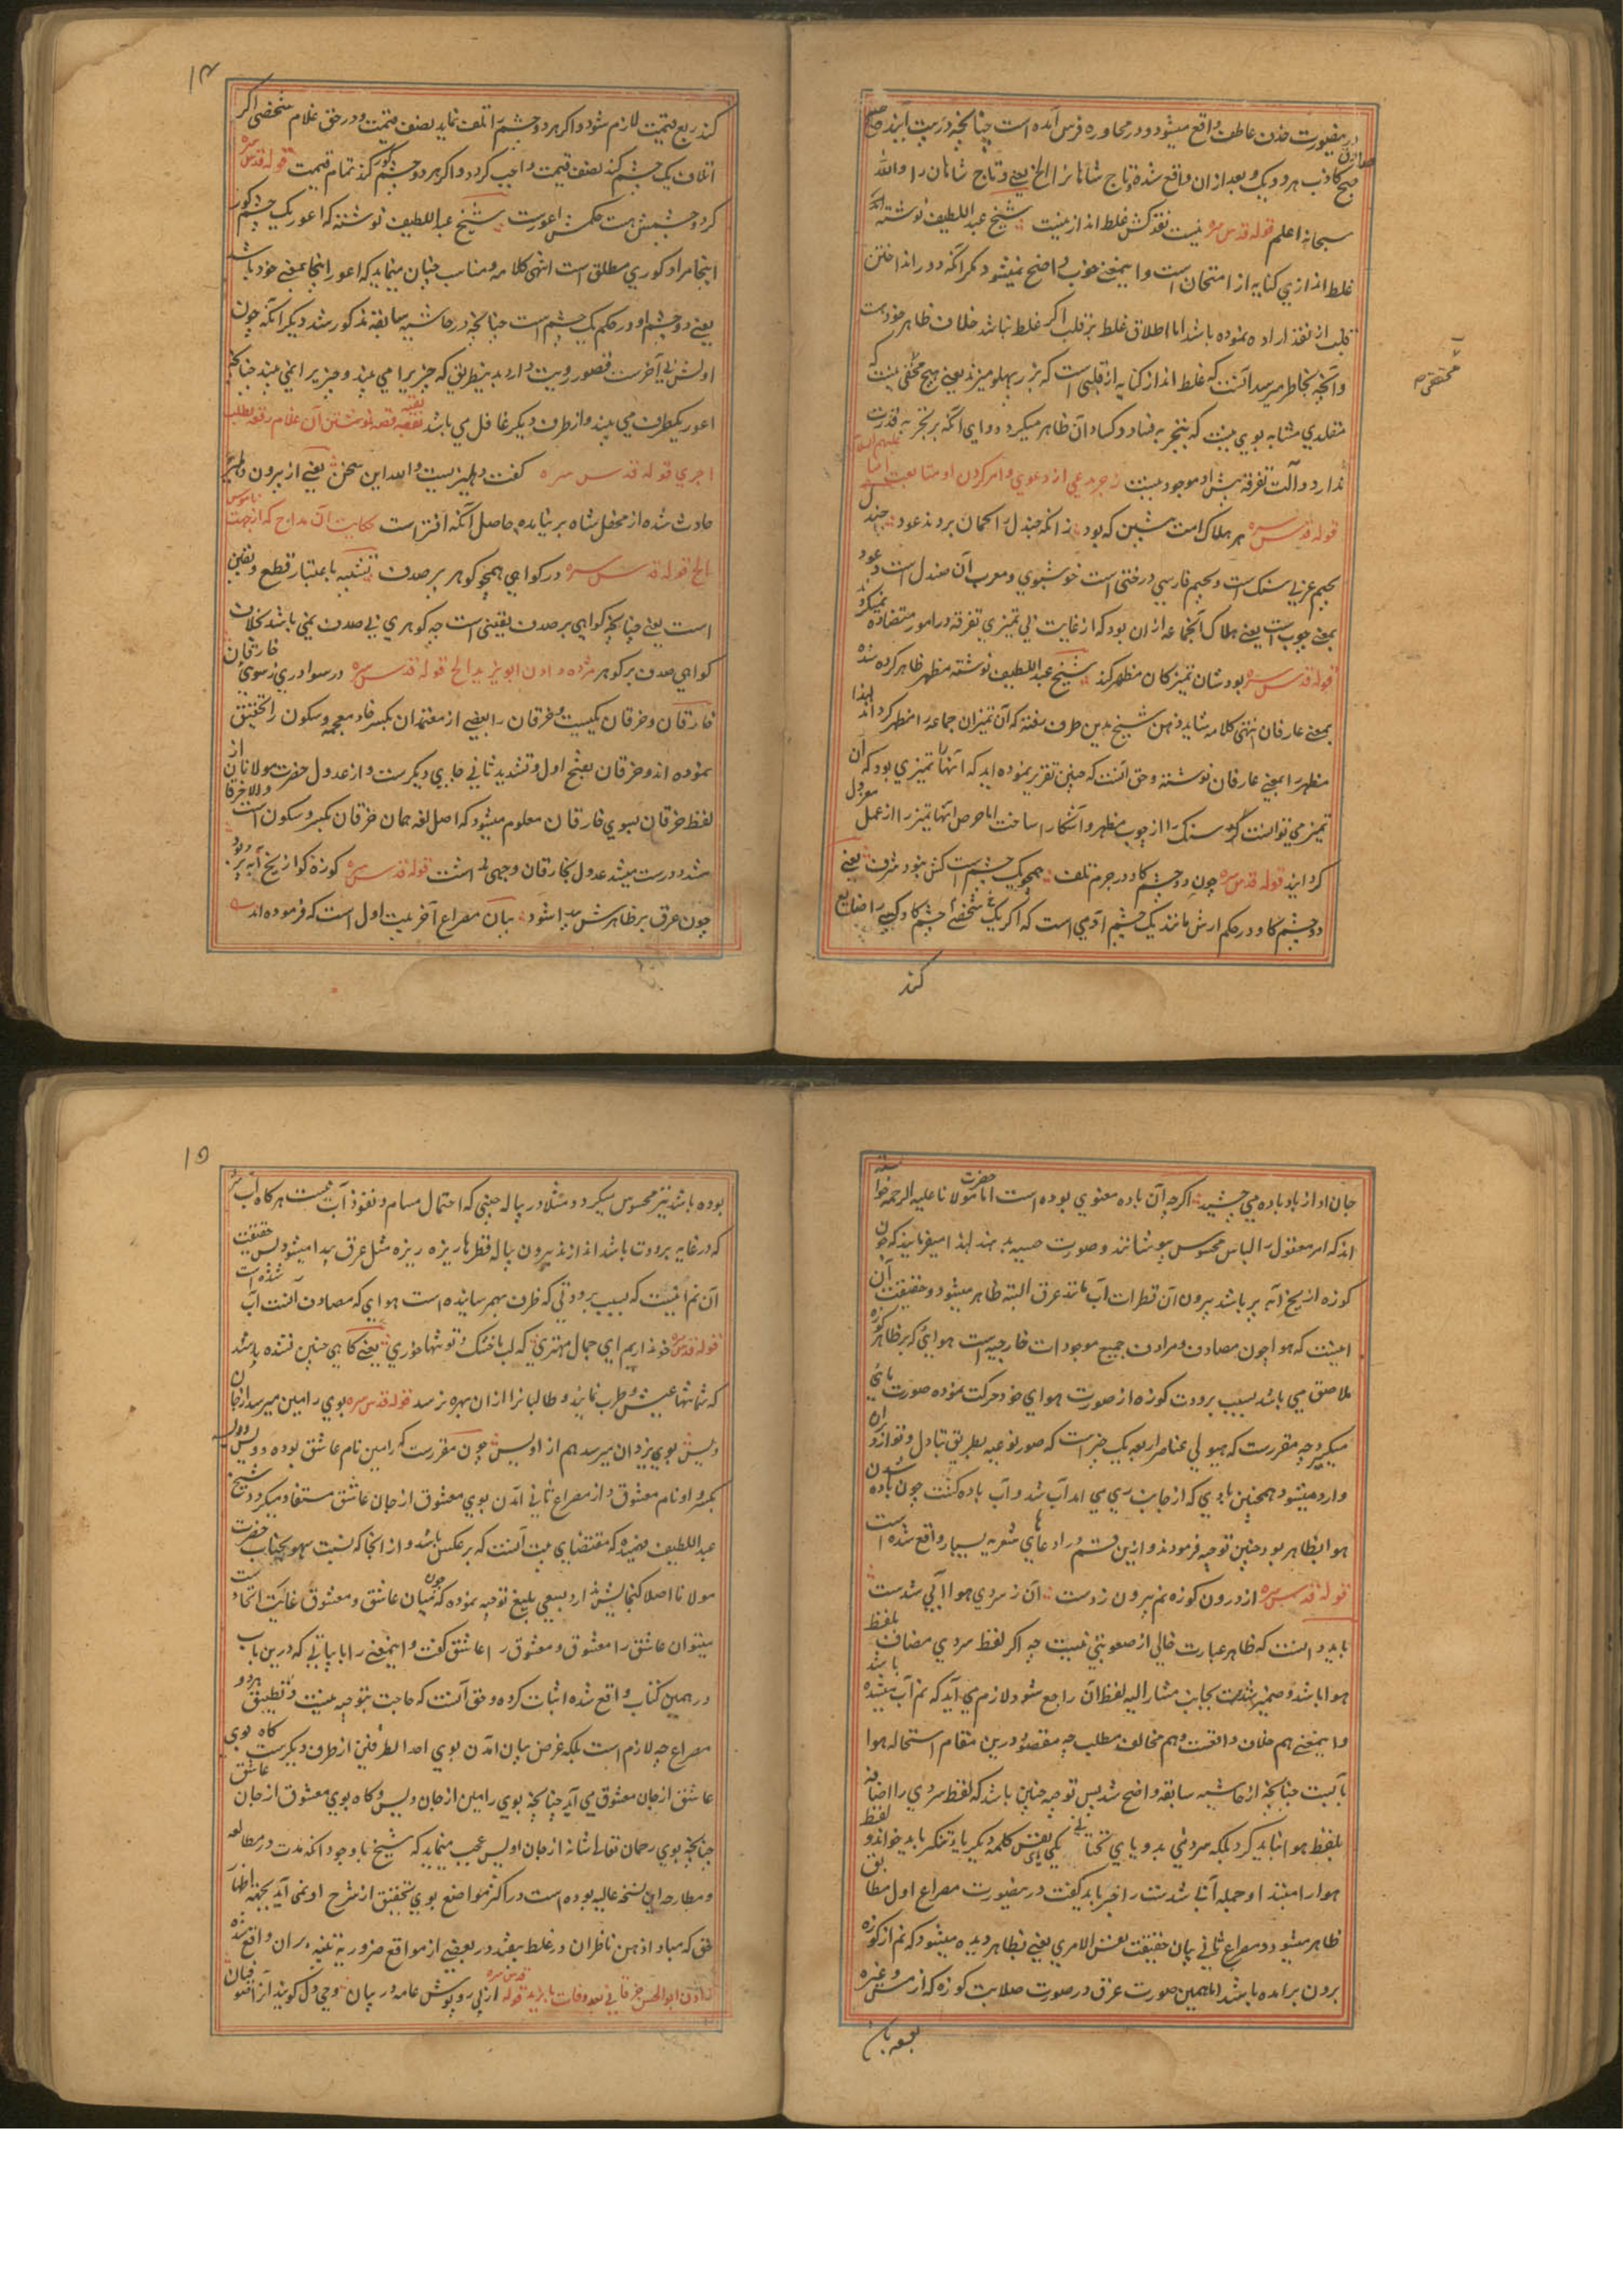 در مصورت حذف عاطف واقع میشود و در محاوره فرس آمده است چنانچه درین بیت آینده صبح صادق
صبح کاذب هر دو یک و بعد ازان واقع شده و تاج شاهانرا الخ یعنی و تاج شاهان را والله
سبحانه اعلم قوله قدس سره نیست نقدکش غلط انداز نیست شیخ عبد اللطیف نوشته که
غلط اندازی کنایه از امتحان است و اینمعنی خوب واضح نمیشود مگر آنکه دور انداختن
قلب از نقد اراده نموده باشد اما اطلاق غلط بر قلب اگر غلط نباشد خلاف ظاهر خود هست
و آنچه بخاطر میرسد آنست که غلط انداز کنایه از قلبی است که زر پهلو میزند یعنی هیچ مخفی نیست که
متقلدی مشابه بوی نیست که بتجربه فساد و کساد آن ظاهر میگردد و ای آنکه بر تجربه قدرت
ندارد و آلت تفرقه پیش او موجود نیست زجر مدعی از دعوی و امر کردن او متابعت انبیا علیهم السلام
قوله قدس سره هر هلاک امت پیشین که بود زانکه جندل را گمان بردند عود جندل
بجیم عربی سنگ است و بجیم فارسی درختی است خوشبوی و معرب آن صندل است و عود
بمعنی چوب است یعنی هلاک آنجماعه ازان بود که از غایت بی تمیزی تفرقه در امور متضاده نمیکردند
قوله قدس سره بودشان تمیز کان مظهر کند شیخ عبد اللطیف نوشته مظهر ظاهر کرده شده
بمعنی عارفان انتهی کلامه شاید ذهن شیخ بدین طرف رفته که آن تمیزان جماعه را مظهر گرداند لهذا
مظهر را بمعنی عارفان نوشته و حق آنست که چنین تقریر نموده اید که آنها را تمیزی بود که آن
تمیزی توانست که سنگ را از چوب مظهر و آشکارا ساخت اما حرص آنها تمیز را از عمل معزول
گردانید قوله قدس سره چون دو چشم گاو در جرم تلف همچو یک چشم است کش نبود شرف یعنی
دو چشم گاو در حکم ارش مانند یک چشم آدمی است که اگر یک شخصی چشم گاو کسی را ضایع
کند
۱۴
کند ربع قیمت لازم شود و اگر هر دو چشم را تلف نماید نصف قیمت و در حق غلام شخصی اگر
اتلاف یک چشم کند نصف قیمت واجب گردد و اگر هر دو چشم کور کند تمام قیمت قوله قدس سره
گر دو چشمش هست حکمش اعورست شیخ عبد اللطیف نوشته که اعور یک چشم کور
اینجا مراد کوری مطلق است انتهی کلامه و مناسب چنان مینماید که اعور اینجا بمعنی خود باشد
یعنی دو چشم او در حکم یک چشم است چنانچه در حاشیه سابقه مذکور شد دیگر آنکه چون
اولش بی آخرست قصور رویت دارد بدینطریق که چیزیرا می بیند و چیزیرا نمی بیند چنانکه
اعور یکطرف می بیند و از طرف دیگر غافل می باشد بقیه قصه نوشتن آن غلام رقعه بطلب
اجری قوله قدس سره گفت دهلیزیست والله این سخن یعنی از بیرون دهلیز
حادث شده از محفل شاه بر نیامده حاصل آنکه افتراست حکایت آن مداح که از جهت ناموس
الخ قوله قدس سره در گواهی همچو گوهر بر صدف تشبیه باعتبار قطع و یقین
است یعنی چنانچه گواهی بر صدف یقینی است چه گوهری بی صدف نمی باشد بخلاف
گواهی صدف بر گوهر مژده دادن ابو یزید الخ قوله قدس سره در سواد ری زسوی خارقان
خارقان و خرقان یکیست و خرقان را بعضی از معتمدان بکسر خاء معجمه و سکون را تحقیق
نموده اند و خرقان بفتح اول و تشدید ثانی جای دیگرست و از عدول حضرت مولانا از
لفظ خرقان بسوی خارقان معلوم میشود که اصل لغه همان خرقان بکسر و سکون است والا خرقان
مشدد درست میشد عدول بخارقان وجهی نداشت قوله قدس سره کوزه کو از یخ آبه پر بود
چون عرق بر ظاهرش پیدا شود بیان مصراع آخر بیت اول است که فرموده اند
جان او از باد باده می چشید اگر چه آن باده معنوی بوده است اما حضرت مولانا علیه الرحمه خواسته
اند که امر معقول را لباس محسوس بپوشانند و صورت حسیه بدهند لهذا میفرمایند که چون
کوزه از یخ آبه پر باشد بیرون آن قطرات آب مانند عرق البته ظاهر میشود و حقیقت آن
اینست که هوا چون مصادف و مرادف جمیع موجودات خارجیه است هوایی که بر ظاهر کوزه
ملاصق می باشد بسبب برودت کوزه از صورت هوای خود حرکت نموده صورت مائی
میگیرد چه مقررست که هیولی عناصر اربعه یک چیز است که صور نوعیه بطریق تبادل و توارد بران
وارد میشود همچنین بادی که از جانب ری می آمد آب شد و آب باده گشت چون باده شدن
هوا بظاهر بود چنین توجیه فرمودند و ازین قسم در ادعاهای شعریه بسیار واقع شده است
قوله قدس سره از درون کوزه نم بیرون زدست آن ز سردی هوا آبی شدست
باید دانست که ظاهر عبارت خالی از صعوبتی نیست چه اگر لفظ سردی مضاف بلفظ
هوا باشد و ضمیر شدست بجانب مشار الیه لفظ آن راجع شود لازم می آید که نم آب میشده باشد
و اینمعنی هم خلاف واقعست و هم مخالف مطلب چه مقصود درین مقام استحاله هوا
بآبست چنانچه از حاشیه سابقه واضح شد پس توجیه چنین باشد که لفظ سردی را اضافه
بلفظ هوا نباید کرد بلکه سردیی بدو یای تحتانی یکی یای نفس کلمه دیگر یای تنکر باید خواند و لفظ
هوا را مبتدا و جمله آبی شدست را خبر باید گفت درینصورت مصراع اول مطابق
ظاهر میشود و مصراع ثانی بیان حقیقت نفس الامری یعنی بظاهر دیده میشود که نم از کوزه
برون بر آمده باشد اما همین صورت عرق در صورت صلابت کوزه که از مس و غیره
۱۵
بوده باشد نیز محسوس میگردد و مثلا در پیاله چینی که احتمال مسام و نفوذ آب نیست هرگاه آب
که در غایه برودت باشد اندازند بیرون پیاله قطرها ریزه ریزه مثل عرق پیدا میشود پس حقیقت
آن نم اینست که بسبب برودتی که ظرف بهم رسانیده است هوای که مصادف آنست آب شده است
قوله قدس سره خو نداریم ای جمال مهتری که لب ما خشک و تو تنها خوری یعنی گاهی چنین نشده باشد
که شما تنها عیش و طرب نمایند و طالبانرا ازان بهره نرسد قوله قدس سره بوی رامین میرسد از جان
ویس بوی یزدان میرسد هم از اویس چون مقررست که رامین نام عاشق بوده و ویس
بکسر واو نام معشوق و از مصراع ثانی آمدن بوی معشوق از جان عاشق مستفاد میگردد شیخ
عبد اللطیف فهمیده که مقتضای بیت آنست که بر عکس باشد و از آنجا که نسبت سهو بجناب حضرت
مولانا اصلا گنجایش ندارد بسعی بلیغ توجیه نموده که چون میان عاشق و معشوق غایت اتحاد است
میتوان عاشق را معشوق و معشوق را عاشق گفت و اینمعنی را بابیاتی که درین باب
در همین کتاب واقع شده اثبات کرده و حق آنست که حاجت بتوجیه نیست و تطبیق هر دو
مصراع چه لازم است بلکه غرض بیان آمدن بوی احد الطرفین از طرف دیگرست گاه بوی عاشق
عاشق از جان معشوق می آید چنانچه بوی رامین از جان ویس و گاه بوی معشوق از جان
چنانچه بوی رحمان تعالی شانه از جان اویس عجب مینماید که شیخ با وجود آنکه مدت در مطالعه
و مطارحه این نسخه عالیه بوده است در اکثر مواضع بوی تحقیق از شرح او نمی آید بجهة اظهار
حق که مبادا ذهن ناظران در غلط بیفتد در بعضی از مواقع ضروریه تنبیه بران واقع شده
زادن ابو الحسن خرقانی بعد وفات بایزید قوله قدس سره از پی روپوش عامه در بیان وحی دل گویند آنرا صوفیان